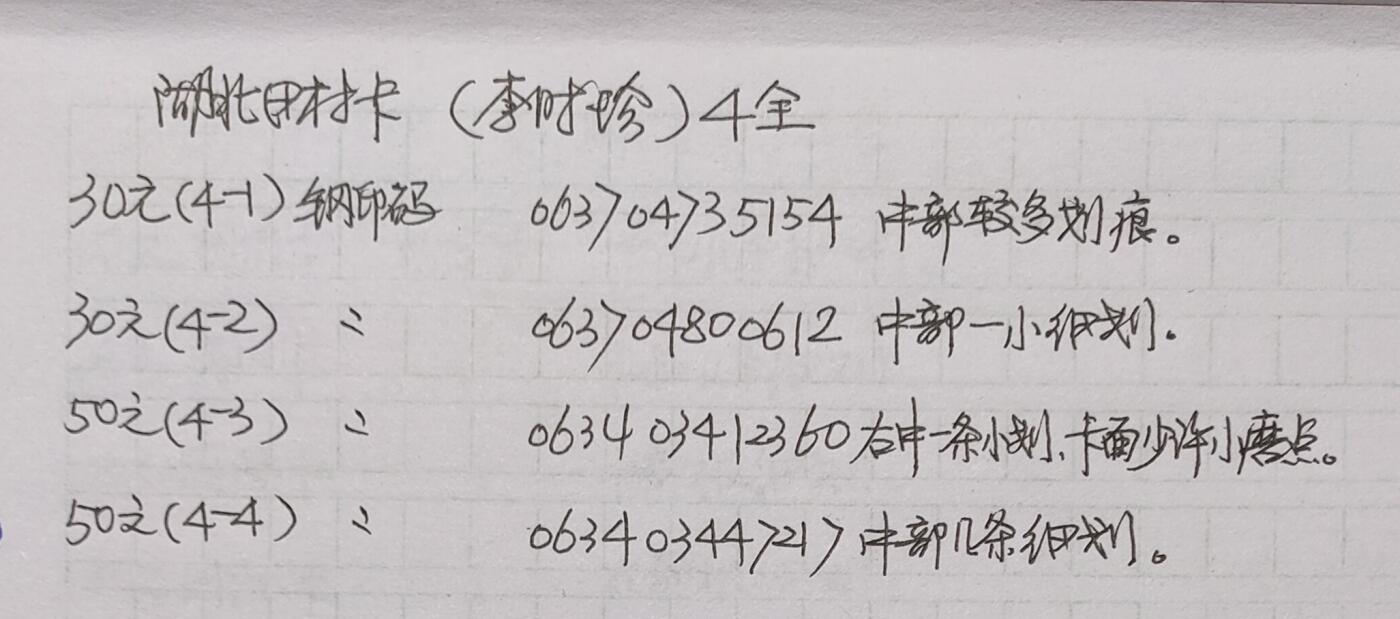 湖北田村卡(李时珍)4全
30元(4-1)钢印码 063704735154 中部较多划痕。
30元(4-2) 〃 063704800612 中部一小细划.
50元(4-3) 〃 063403412360 右中一条小划、卡面少许小磨点。
50元(4-4) 〃 063403447217 中部几条细划。